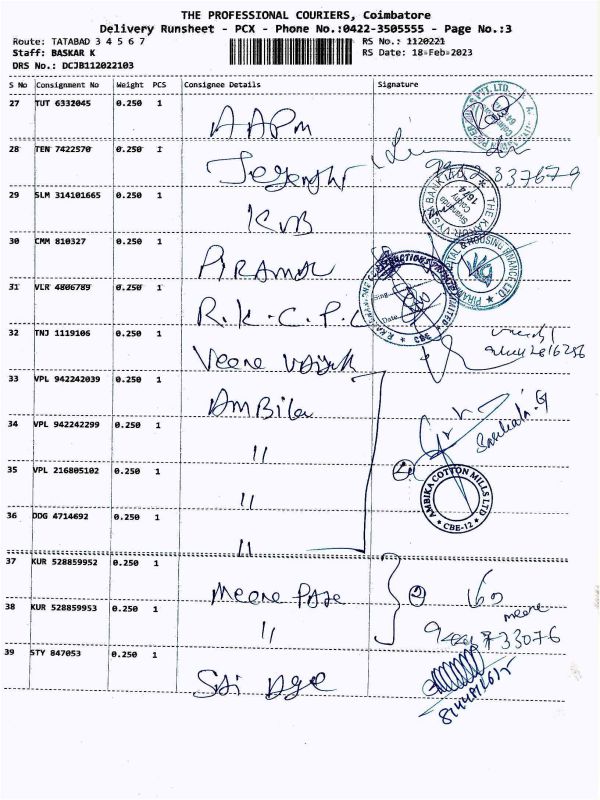 THE PROFESSIONAL COURIERS, Coimbatore
Delivery Runsheet - PCX - Phone No.:0422-3505555 - Page No.:3
Route: TATABAD 3 4 5 6 7 RS No.: 1120221
Staff: BASKAR K RS Date: 18-Feb-2023
DRS No.: DCJB112022103
S No Consignment No Weight PCS Consignee Details Signature
27 TUT 6332045 0.250 1 AAPM
28 TEN 7422570 0.250 1
29 SLM 314101665 0.250 1 KVB
THE KARUR VYSYA BANK LTD 1674
30 CMM 810327 0.250 1 PIRAMAL
PIRAMAL CAPITAL & HOUSING FINANCE LTD.
31 VLR 4806789 0.250 1 R.K.C.P.C
Sing
Date
CBE
32 TNJ 1119106 0.250 1 Veene
33 VPL 942242039 0.250 1 AMBika
34 VPL 942242299 0.250 1 "
35 VPL 216805102 0.250 1 "
AMBIKA COTTON MILLS LTD
CBE-12
36 DDG 4714692 0.250 1 "
37 KUR 528859952 0.250 1 Meene 2
meene
38 KUR 528859953 0.250 1 "
39 STY 847053 0.250 1 Sai